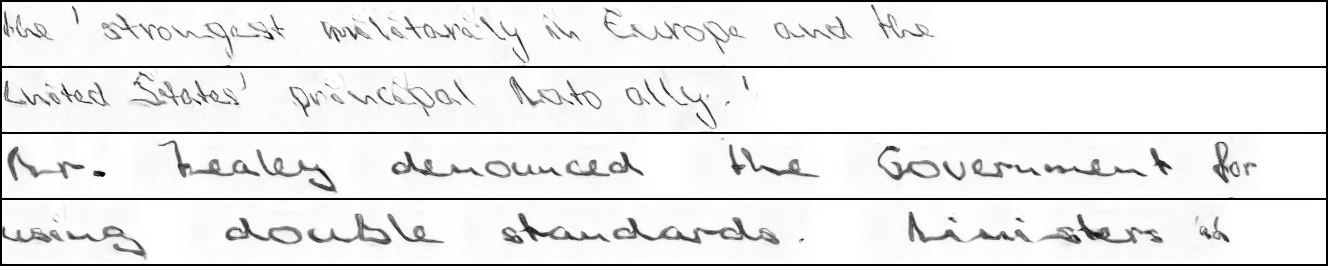 the 'strongest militarily in Europe and the
United States' principal Nato ally.'
Mr. Healey denounced the Government for
using double standards. Ministers in